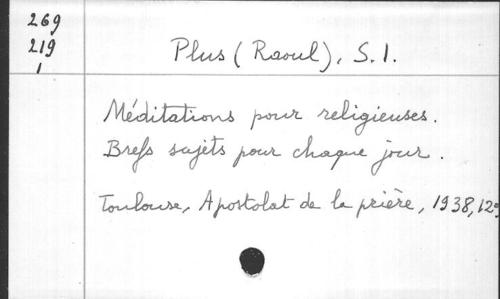 269
219
1
Plus (Raoul), S.I.
Méditations pour religieuses.
Brefs sujets pour chaque jour.
Toulouse, Apostolat de la prière, 1938, 12º